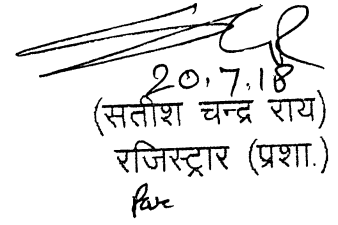 20.7.18
(सतीश चन्द्र राय)
रजिस्ट्रार (प्रशा.)